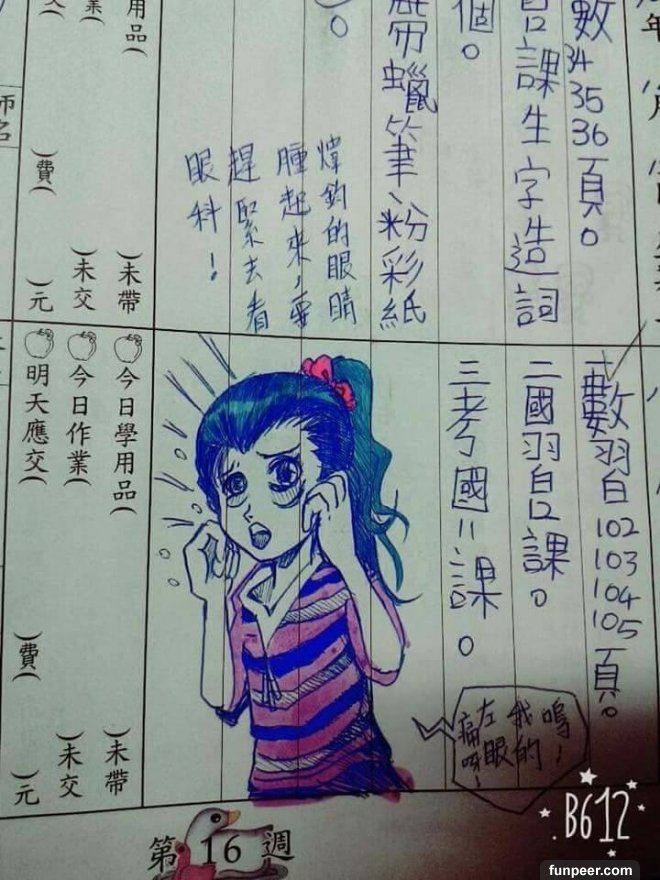 數34 35 36頁。
課生字造詞
個。
蠟筆、粉彩紙
煒鈞的眼睛
腫起來，要
趕緊去看
眼科！
用品）
（未帶
業）
（未交
（費）
（元
一數習102 103 104 105頁。
二國習課。
三考國課。
嗚！
我的
左眼
痛
今日學用品（
）未帶
今日作業（
）未交
明天應交（
）費（
）元
第16週
B612
funpeer.com